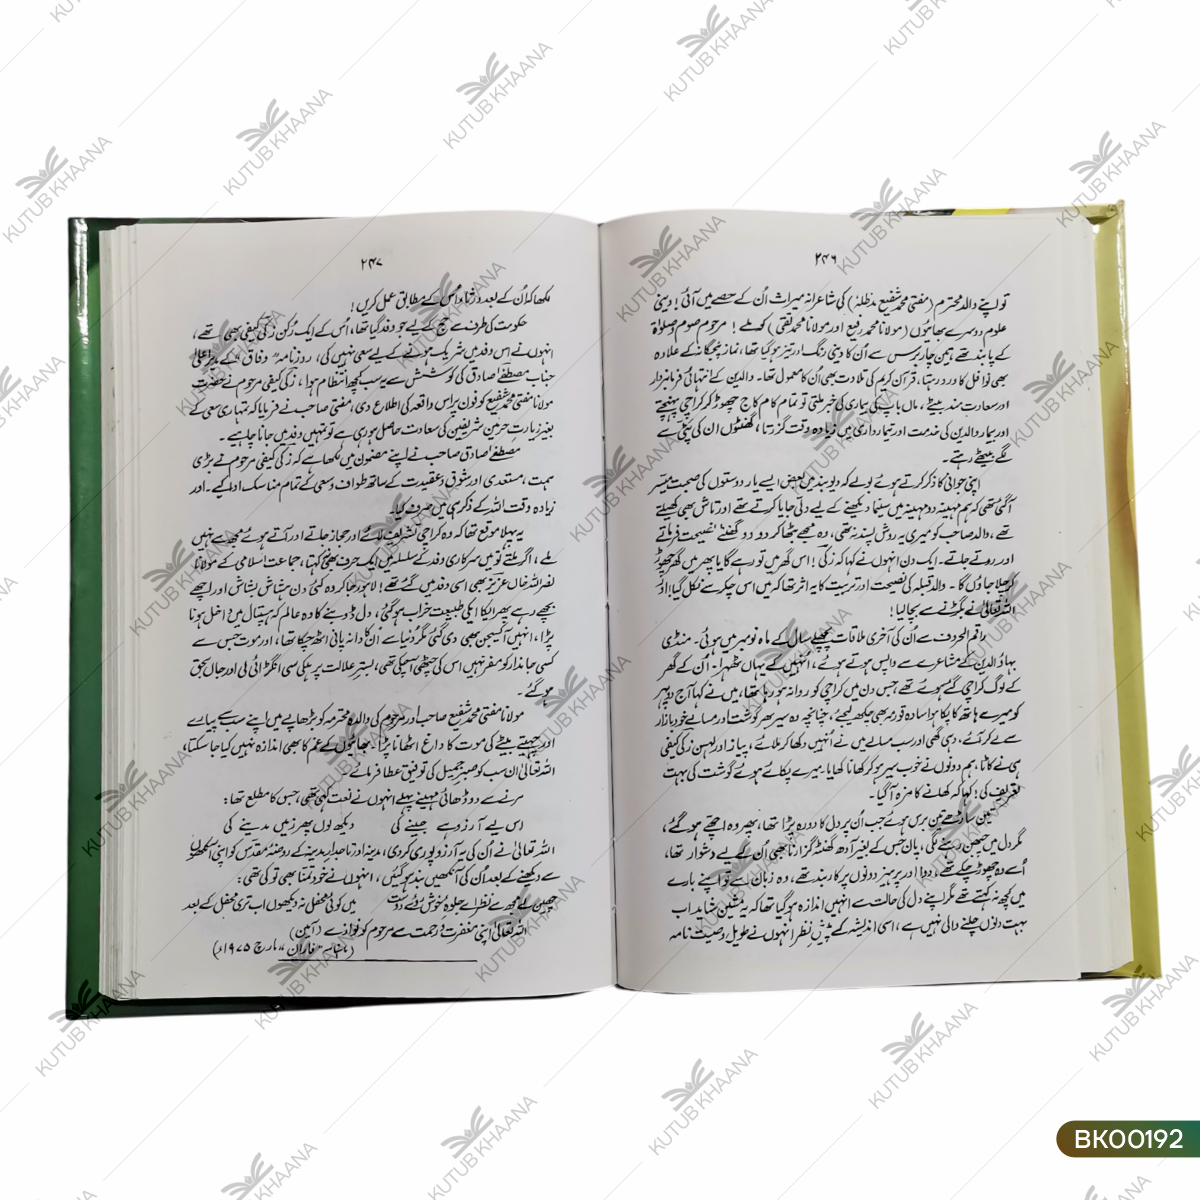 ۲۴۶
تو اپنے والد محترم (مفتی محمد شفیع مدظلہٗ) کی شاعرانہ میراث اُن کے حصے میں آئی! دینی
علوم دوسرے بھائیوں (مولانا محمد رفیع اور مولانا محمد تقی) کو ملے! مرحوم صوم و صلوٰۃ
کے پابند تھے تین چار برس سے اُن کا دینی رنگ اور تیز ہو گیا تھا، نماز پنجگانہ کے علاوہ
بھی نوافل کا ورد رہتا، قرآن کریم کی تلاوت بھی اُن کا معمول تھا۔ والدین کے انتہائی فرمانبردار
اور سعادت مند بیٹے، ماں باپ کی بیماری کی خبر ملتی تو تمام کام کاج چھوڑ کر کراچی پہنچتے
اور بیمار والدین کی خدمت اور تیمارداری میں زیادہ وقت گزرتا، گھنٹوں ان کی پٹی سے
لگے بیٹھے رہتے۔
اپنی جوانی کا ذکر کرتے ہوئے بولے کہ دیوبند میں بعض ایسے یار دوستوں کی صحبت میسّر
آگئی تھی کہ ہم مہینہ دو مہینہ میں سنیما دیکھنے کے لیے دلّی جایا کرتے تھے اور تاش بھی کھیلتے
تھے، والد صاحب کو میری یہ روش پسند نہ تھی، وہ مجھے بٹھا کر دو دو گھنٹے نصیحت فرماتے
اور روتے جاتے۔ ایک دن انہوں نے کہا کہ زکی! اس گھر میں تو رہے گا یا پھر میں گھر چھوڑ
کر چلا جاؤں گا۔ والد قبلہ کی نصیحت اور تربیت کا یہ اثر تھا کہ میں اس چکر سے نکل گیا! اور
اللہ تعالیٰ نے بگڑنے سے بچا لیا!
راقم الحروف سے اُن کی آخری ملاقات پچھلے سال کے ماہ نومبر میں ہوئی۔ منڈی
بہاؤالدین کے مشاعرے سے واپس ہوتے ہوئے، انہیں کے یہاں ٹھہرا۔ اُن کے گھر
کے لوگ کراچی گئے ہوئے تھے جس دن میں کراچی کو روانہ ہو رہا تھا، میں نے کہا آج دوپہر
کو میرے ہاتھ کا پکا ہوا سادہ قورمہ بھی چکھ لیجئے، چنانچہ وہ سیر بھر گوشت اور مسالے خود بازار
سے لے کر آئے، دہی گھی اور سب مسالے میں نے اُنہیں دکھا کر ملائے، پیاز اور لہسن زکی کیفی
ہی نے کاٹا، ہم دونوں نے خوب سیر ہو کر کھانا کھایا۔ میرے پکائے ہوئے گوشت کی بہت
تعریف کی! کہا کہ کھانے کا مزہ آگیا۔
تین ساڑھے تین برس ہوئے جب اُن پر دل کا دورہ پڑا تھا، پھر وہ اچھے ہو گئے،
مگر دل میں چبھن رہنے لگی، پان جس کے بغیر آدھ گھنٹہ گزارنا بھی اُن کے لیے دشوار تھا،
اُسے وہ چھوڑ چکے تھے، دوا اور پرہیز دونوں پر کاربند تھے، وہ زبان سے تو اپنے بارے
میں کچھ نہ کہتے تھے مگر اپنے دل کی حالت سے انہیں اندازہ ہو گیا تھا کہ یہ مشین شاید اب
بہت دنوں چلنے والی نہیں ہے، اسی اندیشہ کے پیشِ نظر انہوں نے طویل وصیت نامہ
۲۴۷
لکھا کہ اُن کے بعد ورثاء اُس کے مطابق عمل کریں!
حکومت کی طرف سے حج کے لیے جو وفد گیا تھا، اُس کے ایک رُکن زکی کیفی بھی تھے،
انہوں نے اس وفد میں شریک ہونے کے لیے سعی نہیں کی، روزنامہ "وفاق" کے مدیر اعلیٰ
جناب مصطفیٰ صادق کی کوشش سے یہ سب کچھ انتظام ہوا، زکی کیفی مرحوم نے حضرت
مولانا مفتی محمد شفیع کو فون پر اس واقعہ کی اطلاع دی، مفتی صاحب نے فرمایا کہ تمہاری سعی کے
بغیر زیارتِ حرمین شریفین کی سعادت حاصل ہو رہی ہے تو تمہیں وفد میں جانا چاہیے۔
مصطفیٰ صادق صاحب نے اپنے مضمون میں لکھا ہے کہ زکی کیفی مرحوم نے بڑی
ہمت، مستعدی اور شوق و عقیدت کے ساتھ طواف و سعی کے تمام مناسک ادا کیے۔ اور
زیادہ وقت اللہ کے ذکر ہی میں صرف کیا۔
یہ پہلا موقع تھا کہ وہ کراچی تشریف لائے اور حجاز جاتے اور آتے ہوئے مجھ سے نہیں
ملے، اگر ملتے تو میں سرکاری وفد کے سلسلہ میں ایک حرف بھی نہ کہتا، جماعت اسلامی کے مولانا
نصر اللہ خاں عزیز بھی اسی وفد میں گئے تھے! لاہور جا کر وہ کئی دن ہشاش بشاش اور اچھے
بچھے رہے پھر ایکا ایکی طبیعت خراب ہو گئی، دل ڈوبنے کا وہ عالم کہ ہسپتال میں داخل ہونا
پڑا، انہیں آکسیجن بھی دی گئی مگر دُنیا سے اُن کا دانہ پانی اٹھ چکا تھا، اور موت جس سے
کسی جاندار کو مفر نہیں اس کی چٹھی آ چکی تھی، بسترِ علالت پر ہلکی سی انگڑائی لی اور جاں بحق
ہو گئے۔
مولانا مفتی محمد شفیع صاحب اور مرحوم کی والدہ محترمہ کو بڑھاپے میں اپنے سب سے پیارے
اور چہیتے بیٹے کی موت کا داغ اٹھانا پڑا۔ بھائیوں کے غم کا بھی اندازہ نہیں کیا جا سکتا،
اللہ تعالیٰ ان سب کو صبرِ جمیل کی توفیق عطا فرمائے۔
مرنے سے دو ڈھائی مہینے پہلے انہوں نے نعت کہی تھی، جس کا مطلع تھا:
اس لیے آرزو ہے جینے کی دیکھ لوں پھر زمیں مدینے کی
اللہ تعالیٰ نے اُن کی یہ آرزو پوری کر دی، مدینہ اور تاجدارِ مدینہ کے روضۂ مقدس کو اپنی آنکھوں
سے دیکھنے کے بعد اُن کی آنکھیں بند ہو گئیں، انہوں نے خود تمنا بھی تو کی تھی:
چھین لے مجھ سے نظر اے جلوۂ خوش روئے دوست میں کوئی محفل نہ دیکھوں اب تری محفل کے بعد
اللہ تعالیٰ اپنی مغفرت و رحمت سے مرحوم کو نوازے (آمین)
(ماہنامہ "فاران"، مارچ ۱۹۷۵ء)
KUTUB KHAANA
BK00192